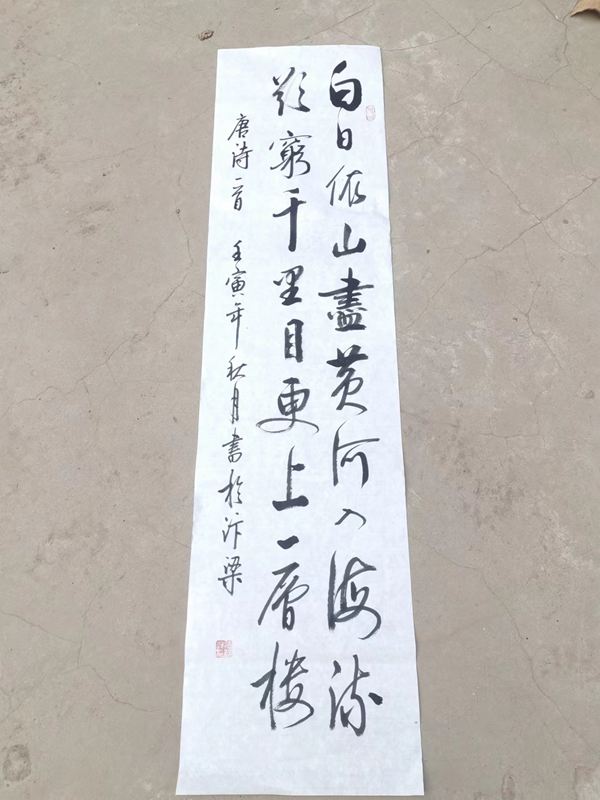 白日依山盡黄河入海流
欲窮千里目更上一層楼
唐诗一首 壬寅年秋月書於汴梁